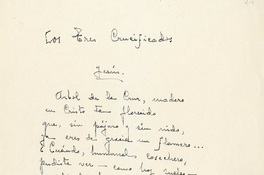 Los Tres Crucificados
Jesús.
Arbol de la Cruz, madero
en Cristo tan florido
que, sin pájaro y sin nido,
ya eres de gracia un
¿Cuándo, humanal cosechero,
pudiste ver como hoy